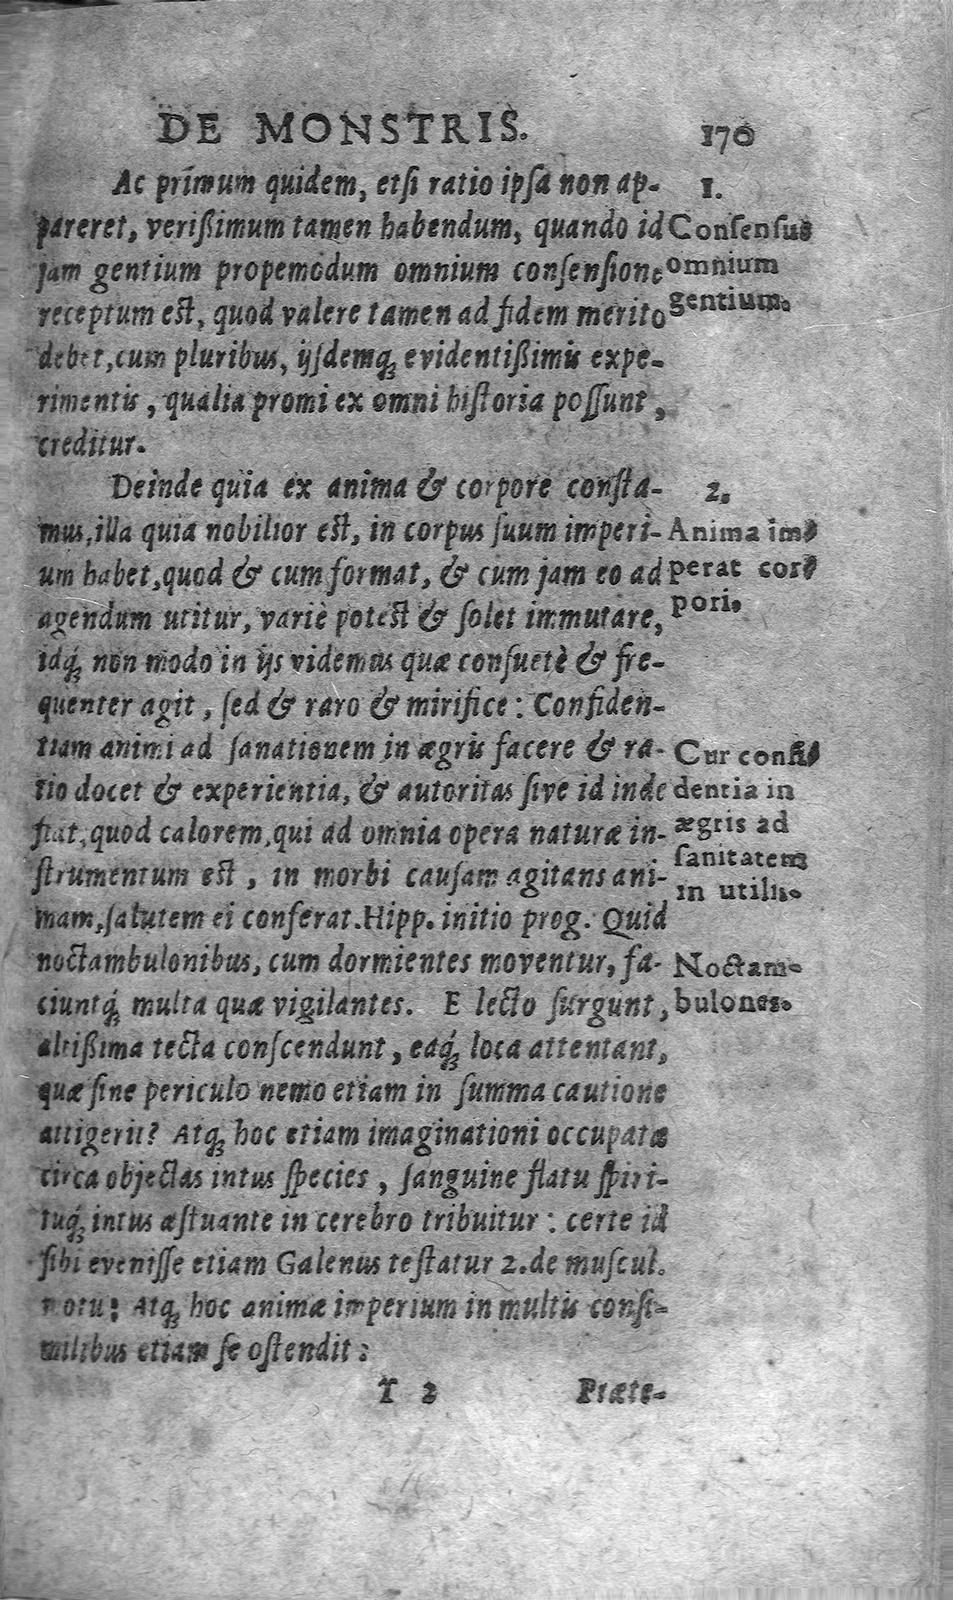 DE MONSTRIS.
170
Ac primum quidem, etsi ratio ipſa non ap-
pareret, verißimum tamen habendum, quando id
jam gentium propemodum omnium conſenſione
receptum est, quod valere tamen ad fidem merito
debet, cum pluribus, ijſdemq́ꝫ evidentißimis expe-
rimentis, qualia promi ex omni hiſtoria poſſunt,
creditur.
1.
Conſenſus
omnium
gentium.
Deinde quia ex anima & corpore conſta-
mus, illa quia nobilior est, in corpus ſuum imperi-
um habet, quod & cum format, & cum jam eo ad
agendum utitur, variè potest & ſolet immutare,
idq́ꝫ non modo in ijs videmus quæ conſuetè & fre-
quenter agit, ſed & raro & mirifice: Confiden-
tiam animi ad ſanationem in ægris facere & ra-
tio docet & experientia, & autoritas ſive id inde
fiat, quod calorem, qui ad omnia opera naturæ in-
ſtrumentum est, in morbi cauſam agitans ani-
mam, ſalutem ei conferat. Hipp. initio prog. Quid
noctambulonibus, cum dormientes moventur, fa-
ciuntq́ꝫ multa quæ vigilantes. E lecto ſurgunt,
altißima tecta conſcendunt, eaq́ꝫ loca attentant,
quæ ſine periculo nemo etiam in ſumma cautione
attigerit? Atqꝫ hoc etiam imaginationi occupatæ
circa objectas intus ſpecies, ſanguine flatu ſpiri-
tuq́ꝫ intus æſtuante in cerebro tribuitur: certe id
ſibi eveniſſe etiam Galenus teſtatur 2. de muſcul.
motu: Atqꝫ hoc animæ imperium in multis conſi-
milibus etiam ſe oſtendit:
2.
Anima im-
perat cor-
pori.
Cur confi-
dentia in
ægris ad
ſanitatem
in utilis.
Noctam-
bulones.
T 2
Præte-